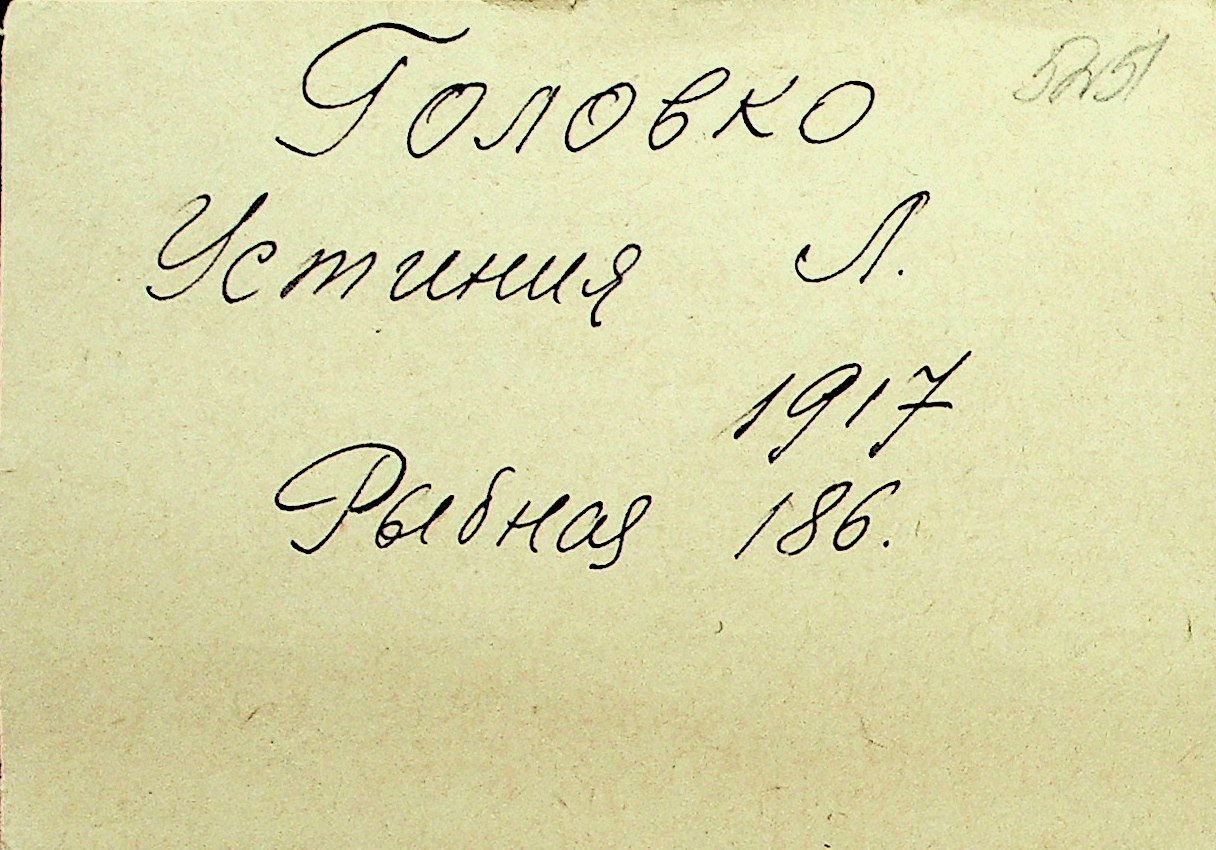 5251
Головко
Устиния Л.
1917
Рыбная 186.